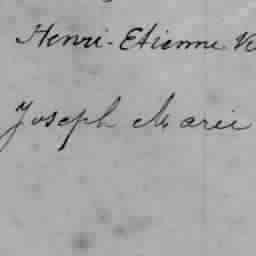 Henri-Etienne Ve
Joseph Marie